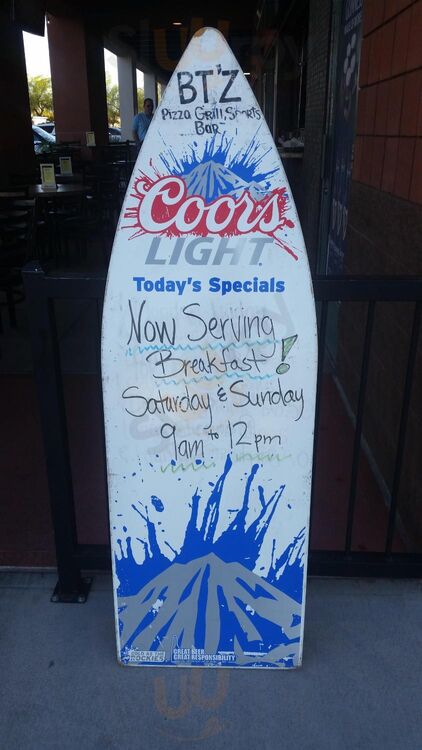 BT'Z
Pizza Grill Sports
Bar
Coors
LIGHT
Today's Specials
Now Serving
Breakfast!
Saturday & Sunday
9am to 12pm
COLD AS THE
ROCKIES
GREAT BEER
GREAT RESPONSIBILITY